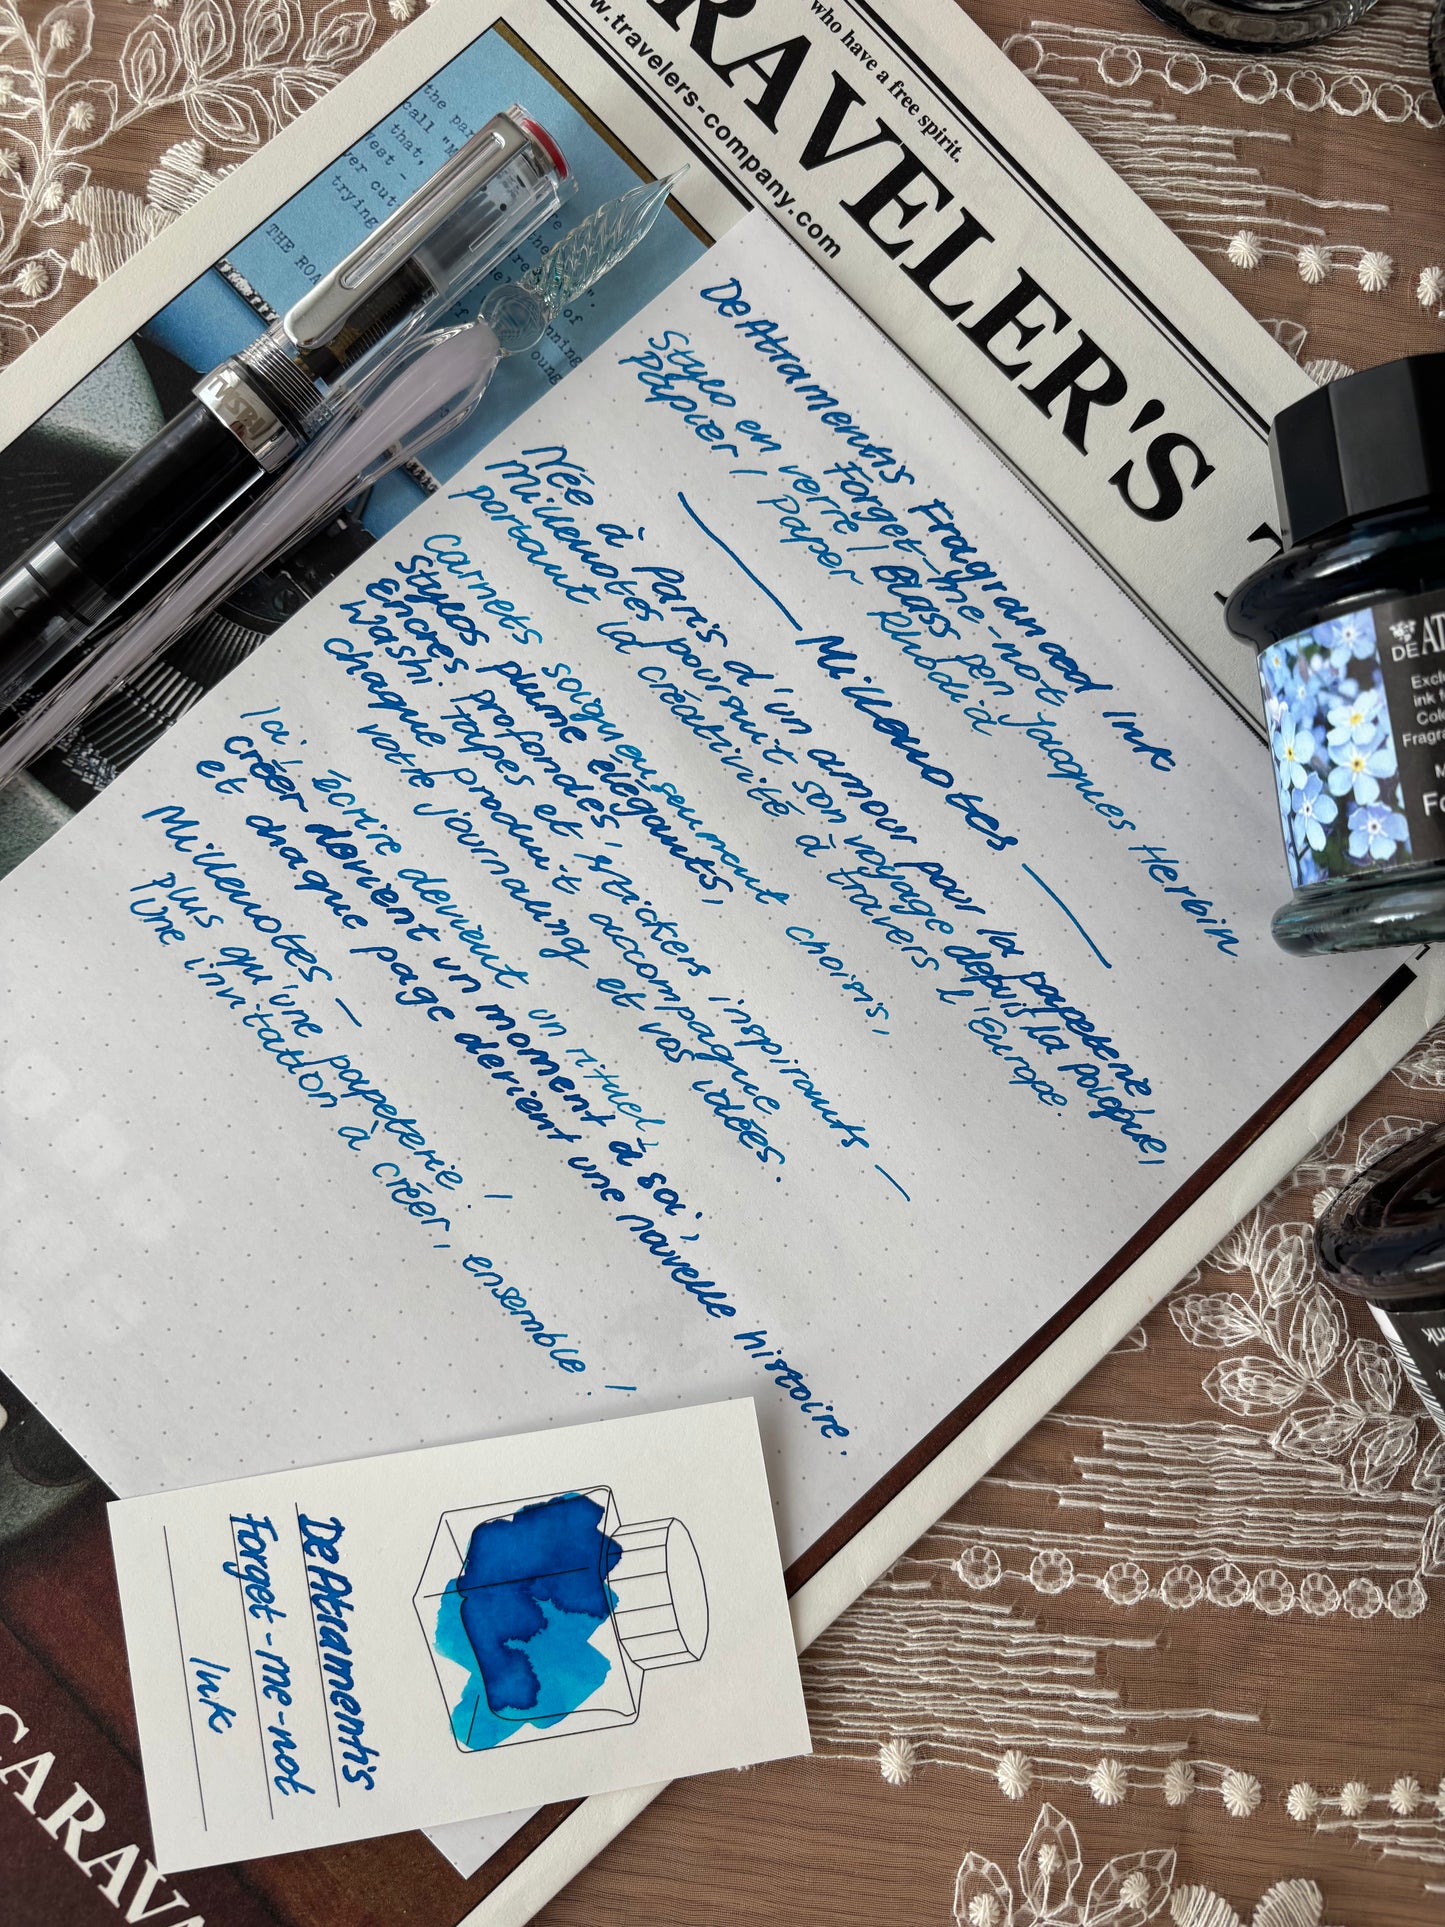 who have a free spirit.
RAVELER'S T
w.travelers-company.com
the par
call "M
that,
West -
ver cut
trying
THE ROA
TWSBI
DeAtramentis Fragranced Ink
Forget-me-not
Styeo en verre / Glass pen Jacques Herbin
Papier / Paper Rhodia
— Millenotes —
Née à Paris d'un amour pour la papeterie,
Millenotes poursuit son voyage depuis la Pologne,
portant la créativité à travers l'Europe.
Carnets soigneusement choisis,
Stylos plume élégants,
Encres profondes,
Washi tapes et stickers inspirants —
chaque produit accompagne
votre journaling et vos idées.
Ici, écrire devient un rituel,
créer devient un moment à soi,
et chaque page devient une nouvelle histoire.
Millenotes —
plus qu'une papeterie !
Une invitation à créer, ensemble !
DeAtramentis
Forget-me-not
Ink
DE AT
Exclu
ink f
Colo
Fragra
Fo
CARAVA